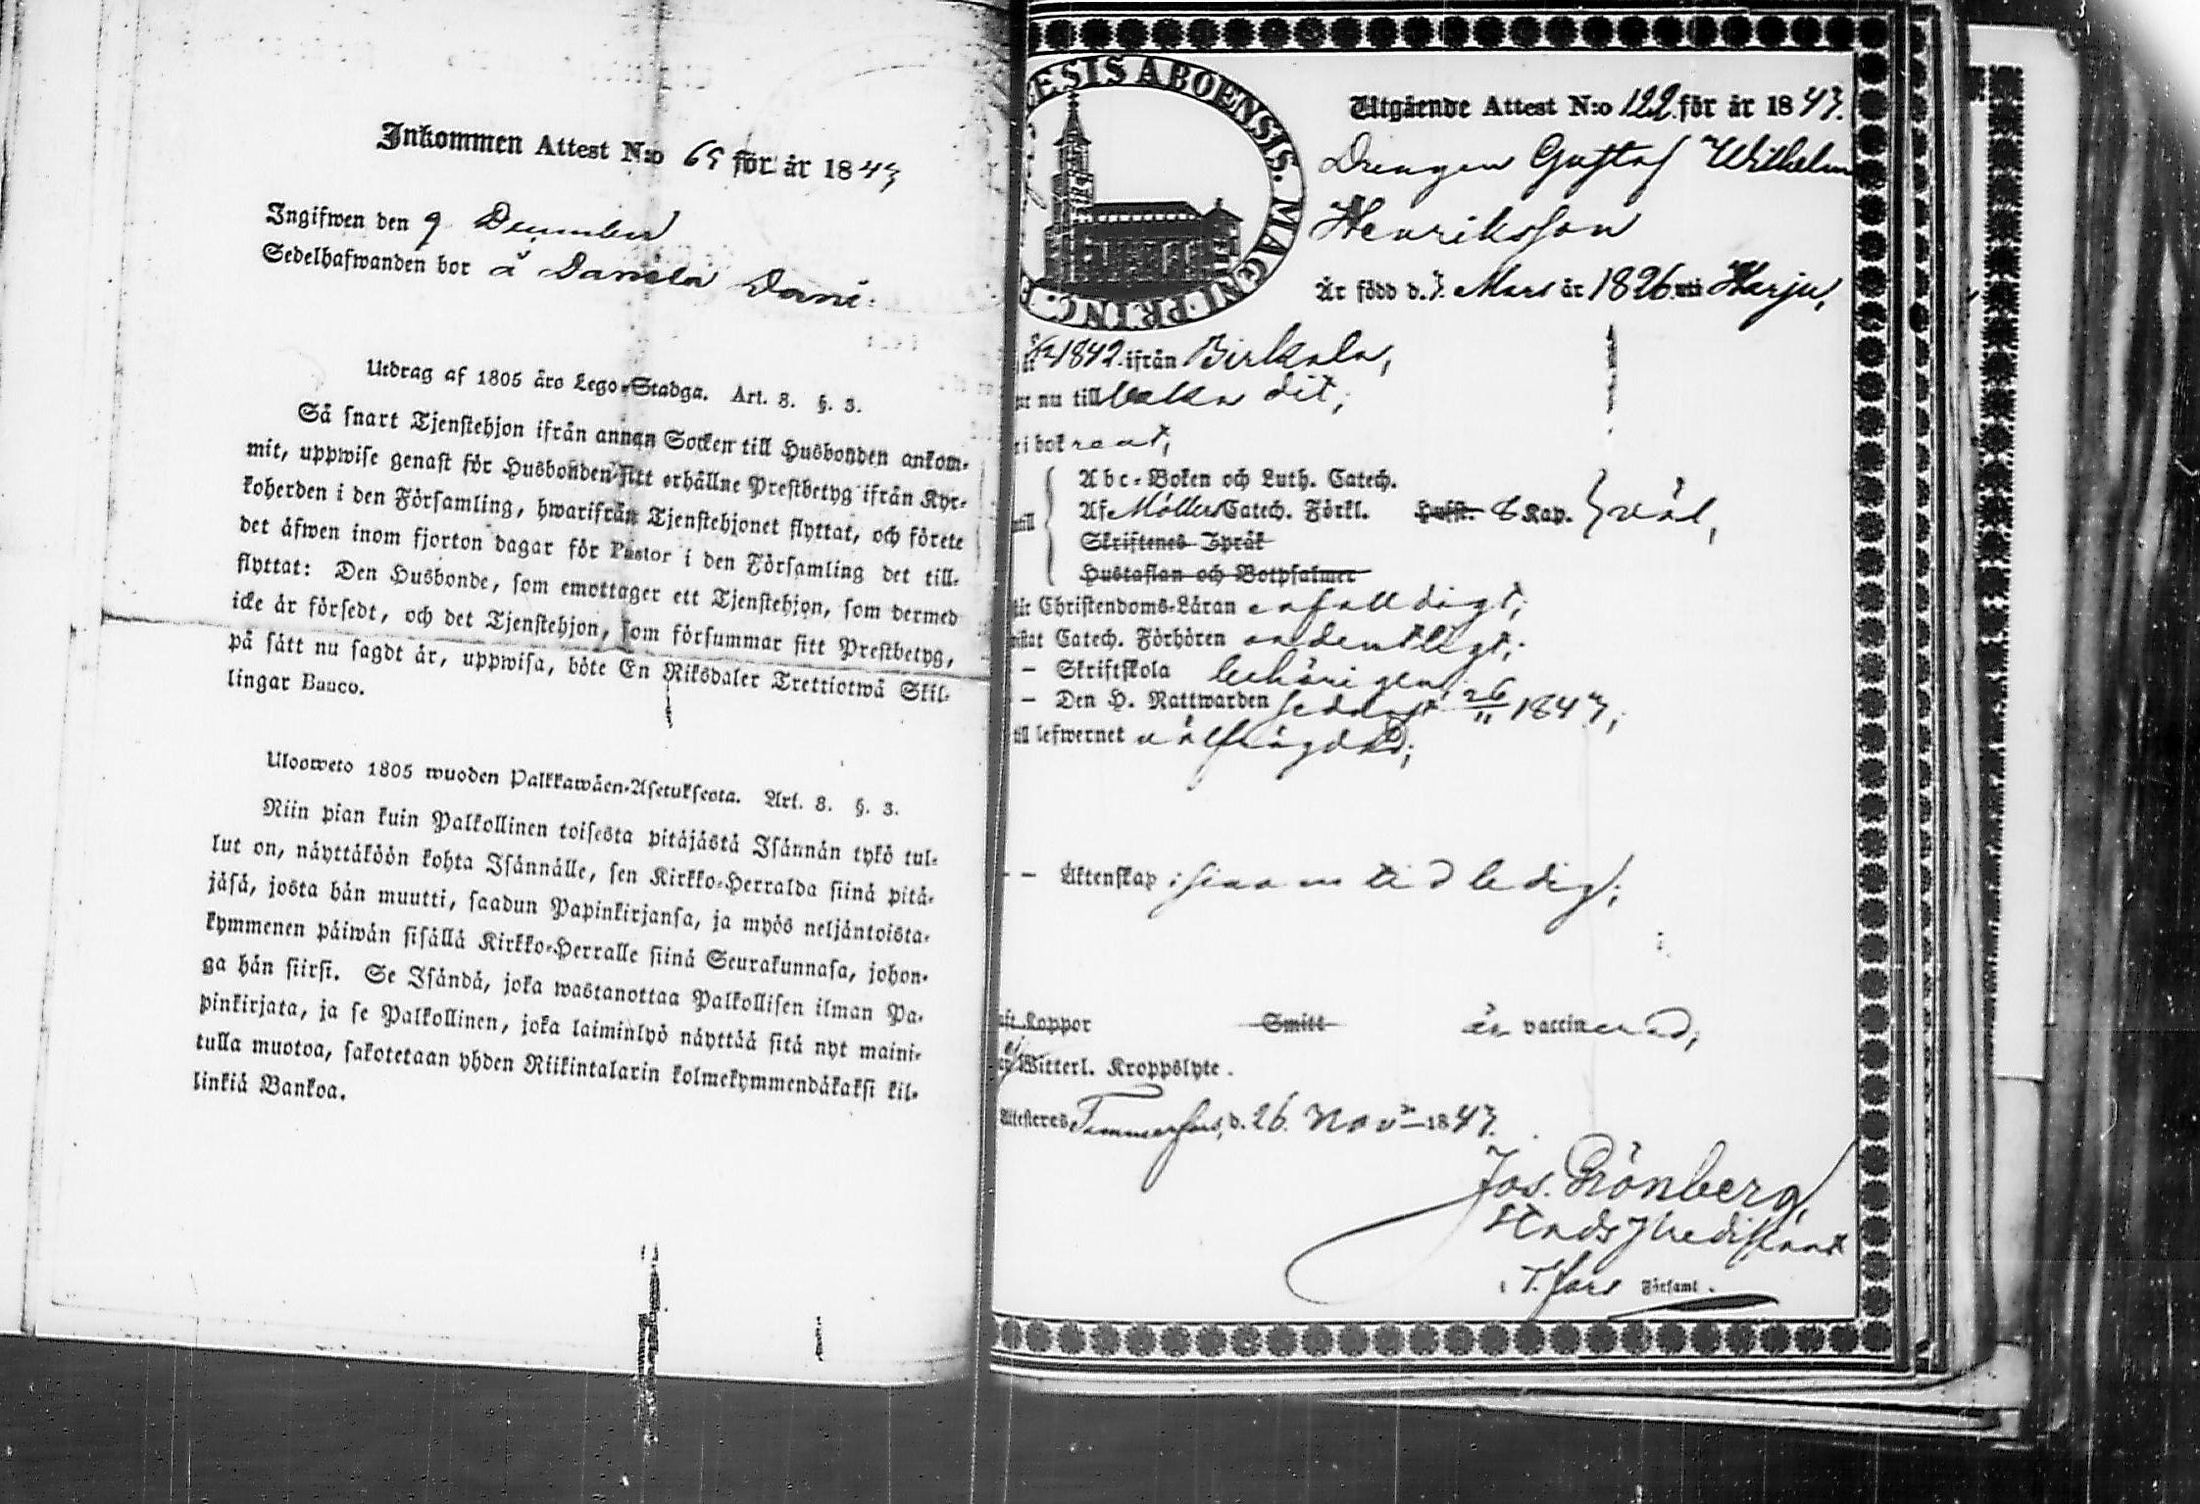 Inkommen Attest N:o 65 för år 1843
Ingifwen den 9 December
Sedelhafwanden bor å Daniela Dani:
Utdrag af 1805 års Lego-Stadga. Art. 8. §. 3.
Så snart Tjenstehjon ifrån annan Socken till Husbonden ankom-
mit, uppwise genast för Husbonden sitt erhållne Prestbetyg ifrån Kyr-
koherden i den Församling, hwarifrån Tjenstehjonet flyttat, och förete
det äfwen inom fjorton dagar för Pastor i den Församling det till-
flyttat: Den Husbonde, som emottager ett Tjenstehjon, som dermed
icke är försedt, och det Tjenstehjon, som försummar sitt Prestbetyg,
på sätt nu sagdt är, uppwisa, böte En Riksdaler Trettiotwå Skil-
lingar Banco.
Uloosweto 1805 wuoden Palkkawäen-Asetuksesta. Art. 8. §. 3.
Niin pian kuin Palkollinen toisesta pitäjästä Isännän tykö tul-
lut on, näyttäköön kohta Isännälle, sen Kirkko-Herralda siinä pitä-
jäsä, josta hän muutti, saadun Papinkirjansa, ja myös neljäntoista-
kymmenen päiwän sisällä Kirkko-Herralle siinä Seurakunnasa, johon-
ga hän siirsi. Se Isändä, joka wastanottaa Palkollisen ilman Pa-
pinkirjata, ja se Palkollinen, joka laiminlyö näyttää sitä nyt maini-
tulla muotoa, sakotetaan yhden Riikintalarin kolmekymmendäkaksi kil-
linkiä Bankoa.
ESIS ABOENSIS. MAGNI. PRINC. F
Utgående Attest N:o 122 för år 1843.
Drengen Gustaf Wilhelm
Henriksson
Är född d. 7. Mars år 1826 uti Harju,
1842 ifrån Birkala,
nu till baka dit;
i bok rent,
Abc-Boken och Luth. Catech.
Af Möllers Catech. Förkl. Hufst. 8 Kap. } väl,
Skriftenes Språk
Hustaflan och Botpsalmer
Christendoms-Läran enfalldigt;
Catech. Förhören ordentligt;
– Skriftskola behörigen,
– Den H. Nattwarden sednast 26/11 1843;
till lefwernet välfrägdad;
– – Äktenskap: sin tid ledig;
Koppor Smitt är vaccinerad,
ej Witterl. Kroppslyte.
Attesteres Tammerfors, d. 26. Nov 1843.
Jos. Grönberg,
Stads Predikant
i T.fors Församl.